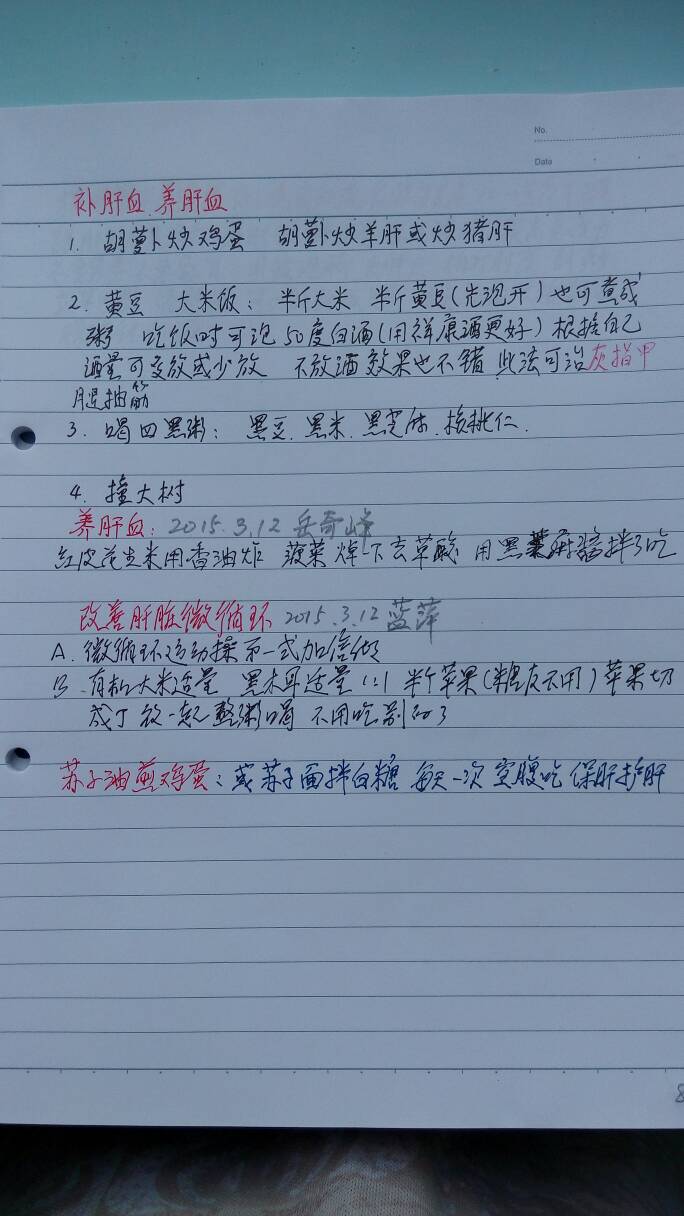 No.
Date
补肝血 养肝血
1. 胡萝卜炒鸡蛋 胡萝卜炒羊肝或炒猪肝
2. 黄豆 大米饭: 半斤大米 半斤黄豆(先泡开)也可煮成
粥 吃饭时可泡50度白酒(用祥康酒更好)根据自己
酒量可多放或少放 不放酒效果也不错 此法可治灰指甲
腿抽筋
3. 喝四黑粥: 黑豆.黑米.黑芝麻.核桃仁.
4. 撞大树
养肝血: 2015.3.12 岳奇峰
红皮花生米用香油炸 菠菜焯下去草酸 用黑 麻酱拌了吃
改善肝脏微循环 2015.3.12 蓝萍
A. 微循环运动操第一式加倍做
B. 有机大米适量 黑木耳适量 1:1 半个苹果(糖尿不用)苹果切
成丁放一起整粥喝 不用吃别的了
苏子油煎鸡蛋: 或苏子面拌白糖 每天一次 空腹吃 保肝护肝
8